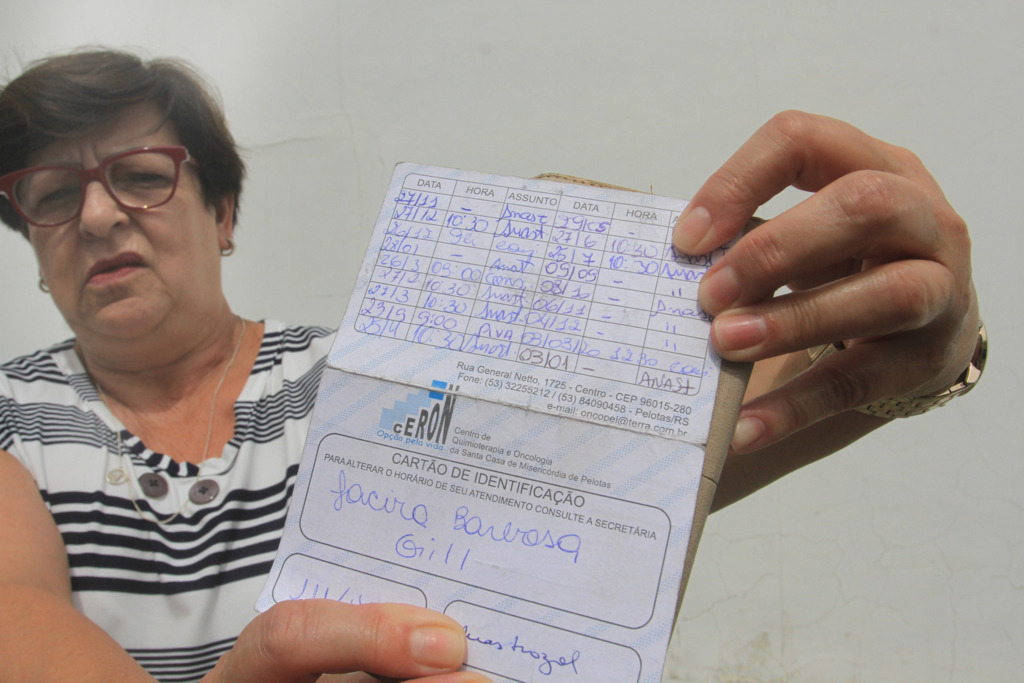 DATA HORA ASSUNTO DATA HORA
27/11 - Anast 29/05 -
27/12 10:30 Anast 27/6 10:30 Anast
9h 25/7 10:30 Anast
28/01 - Anast 09/09 - "
26/3 09:00 - Anast
27/2 10:30 Anast 06/11 - "
27/3 10:30 Anast 04/12 - "
23/9 9:00 AVA 03/03/20 12:30
25/4 10:30 Anast 03/01 - ANAST
Rua General Netto, 1725 - Centro - CEP 96015-280
Fone: (53) 32255212 / (53) 84090458 - Pelotas/RS
e-mail: oncopel@terra.com.br
CERON
Opção pela vida
Centro de
Quimioterapia e Oncologia
da Santa Casa de Misericórdia de Pelotas
CARTÃO DE IDENTIFICAÇÃO
PARA ALTERAR O HORÁRIO DE SEU ATENDIMENTO CONSULTE A SECRETÁRIA
Jacira Barbosa
Gill